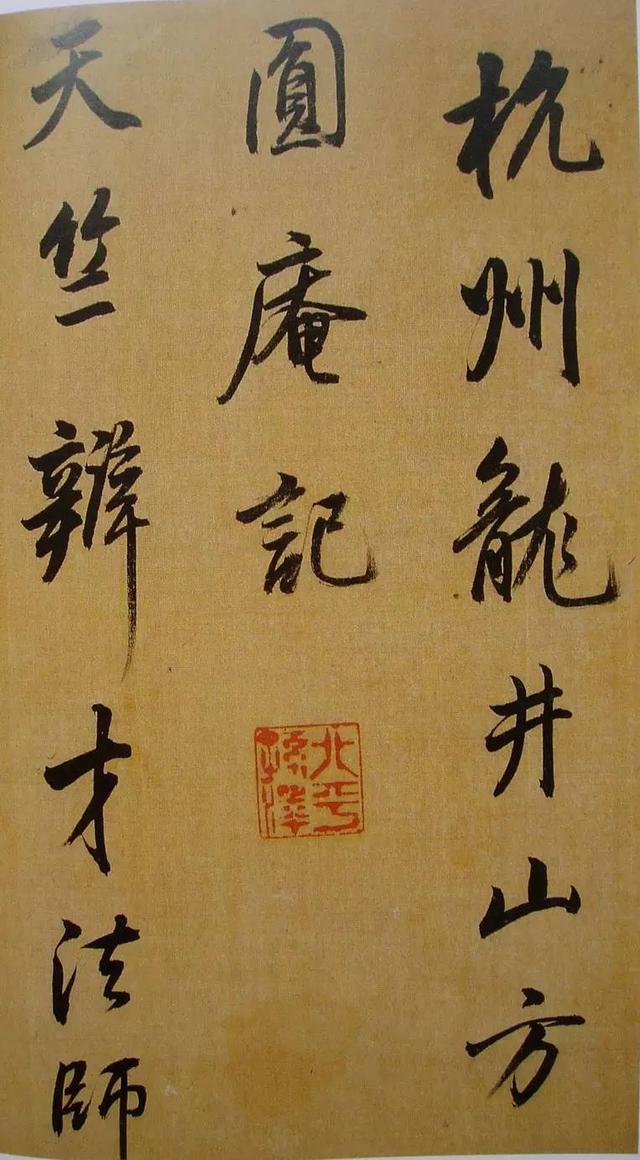 杭州龍井山方
圓庵記
北平
孫澤
天竺辯才法師